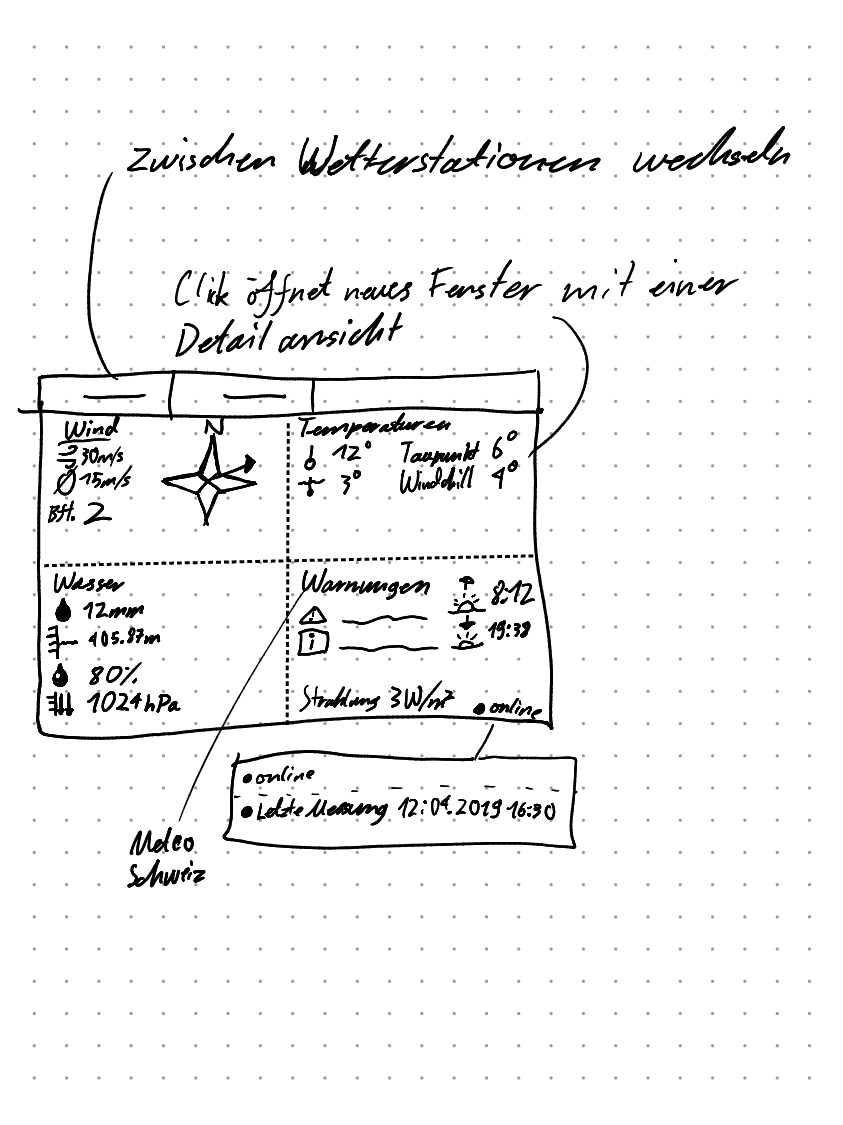 zwischen Wetterstationen wechseln
Click öffnet neues Fenster mit einer
Detailansicht
Wind
30m/s
Ø 15m/s
Bft. 2
N
Temperaturen
12° Taupunkt 6°
3° Windchill 4°
Wasser
12mm
405.87m
80%
1024hPa
Warnungen
8:12
19:38
Strahlung 3W/m²
online
online
Letzte Messung 12.04.2019 16:30
Meteo
Schweiz